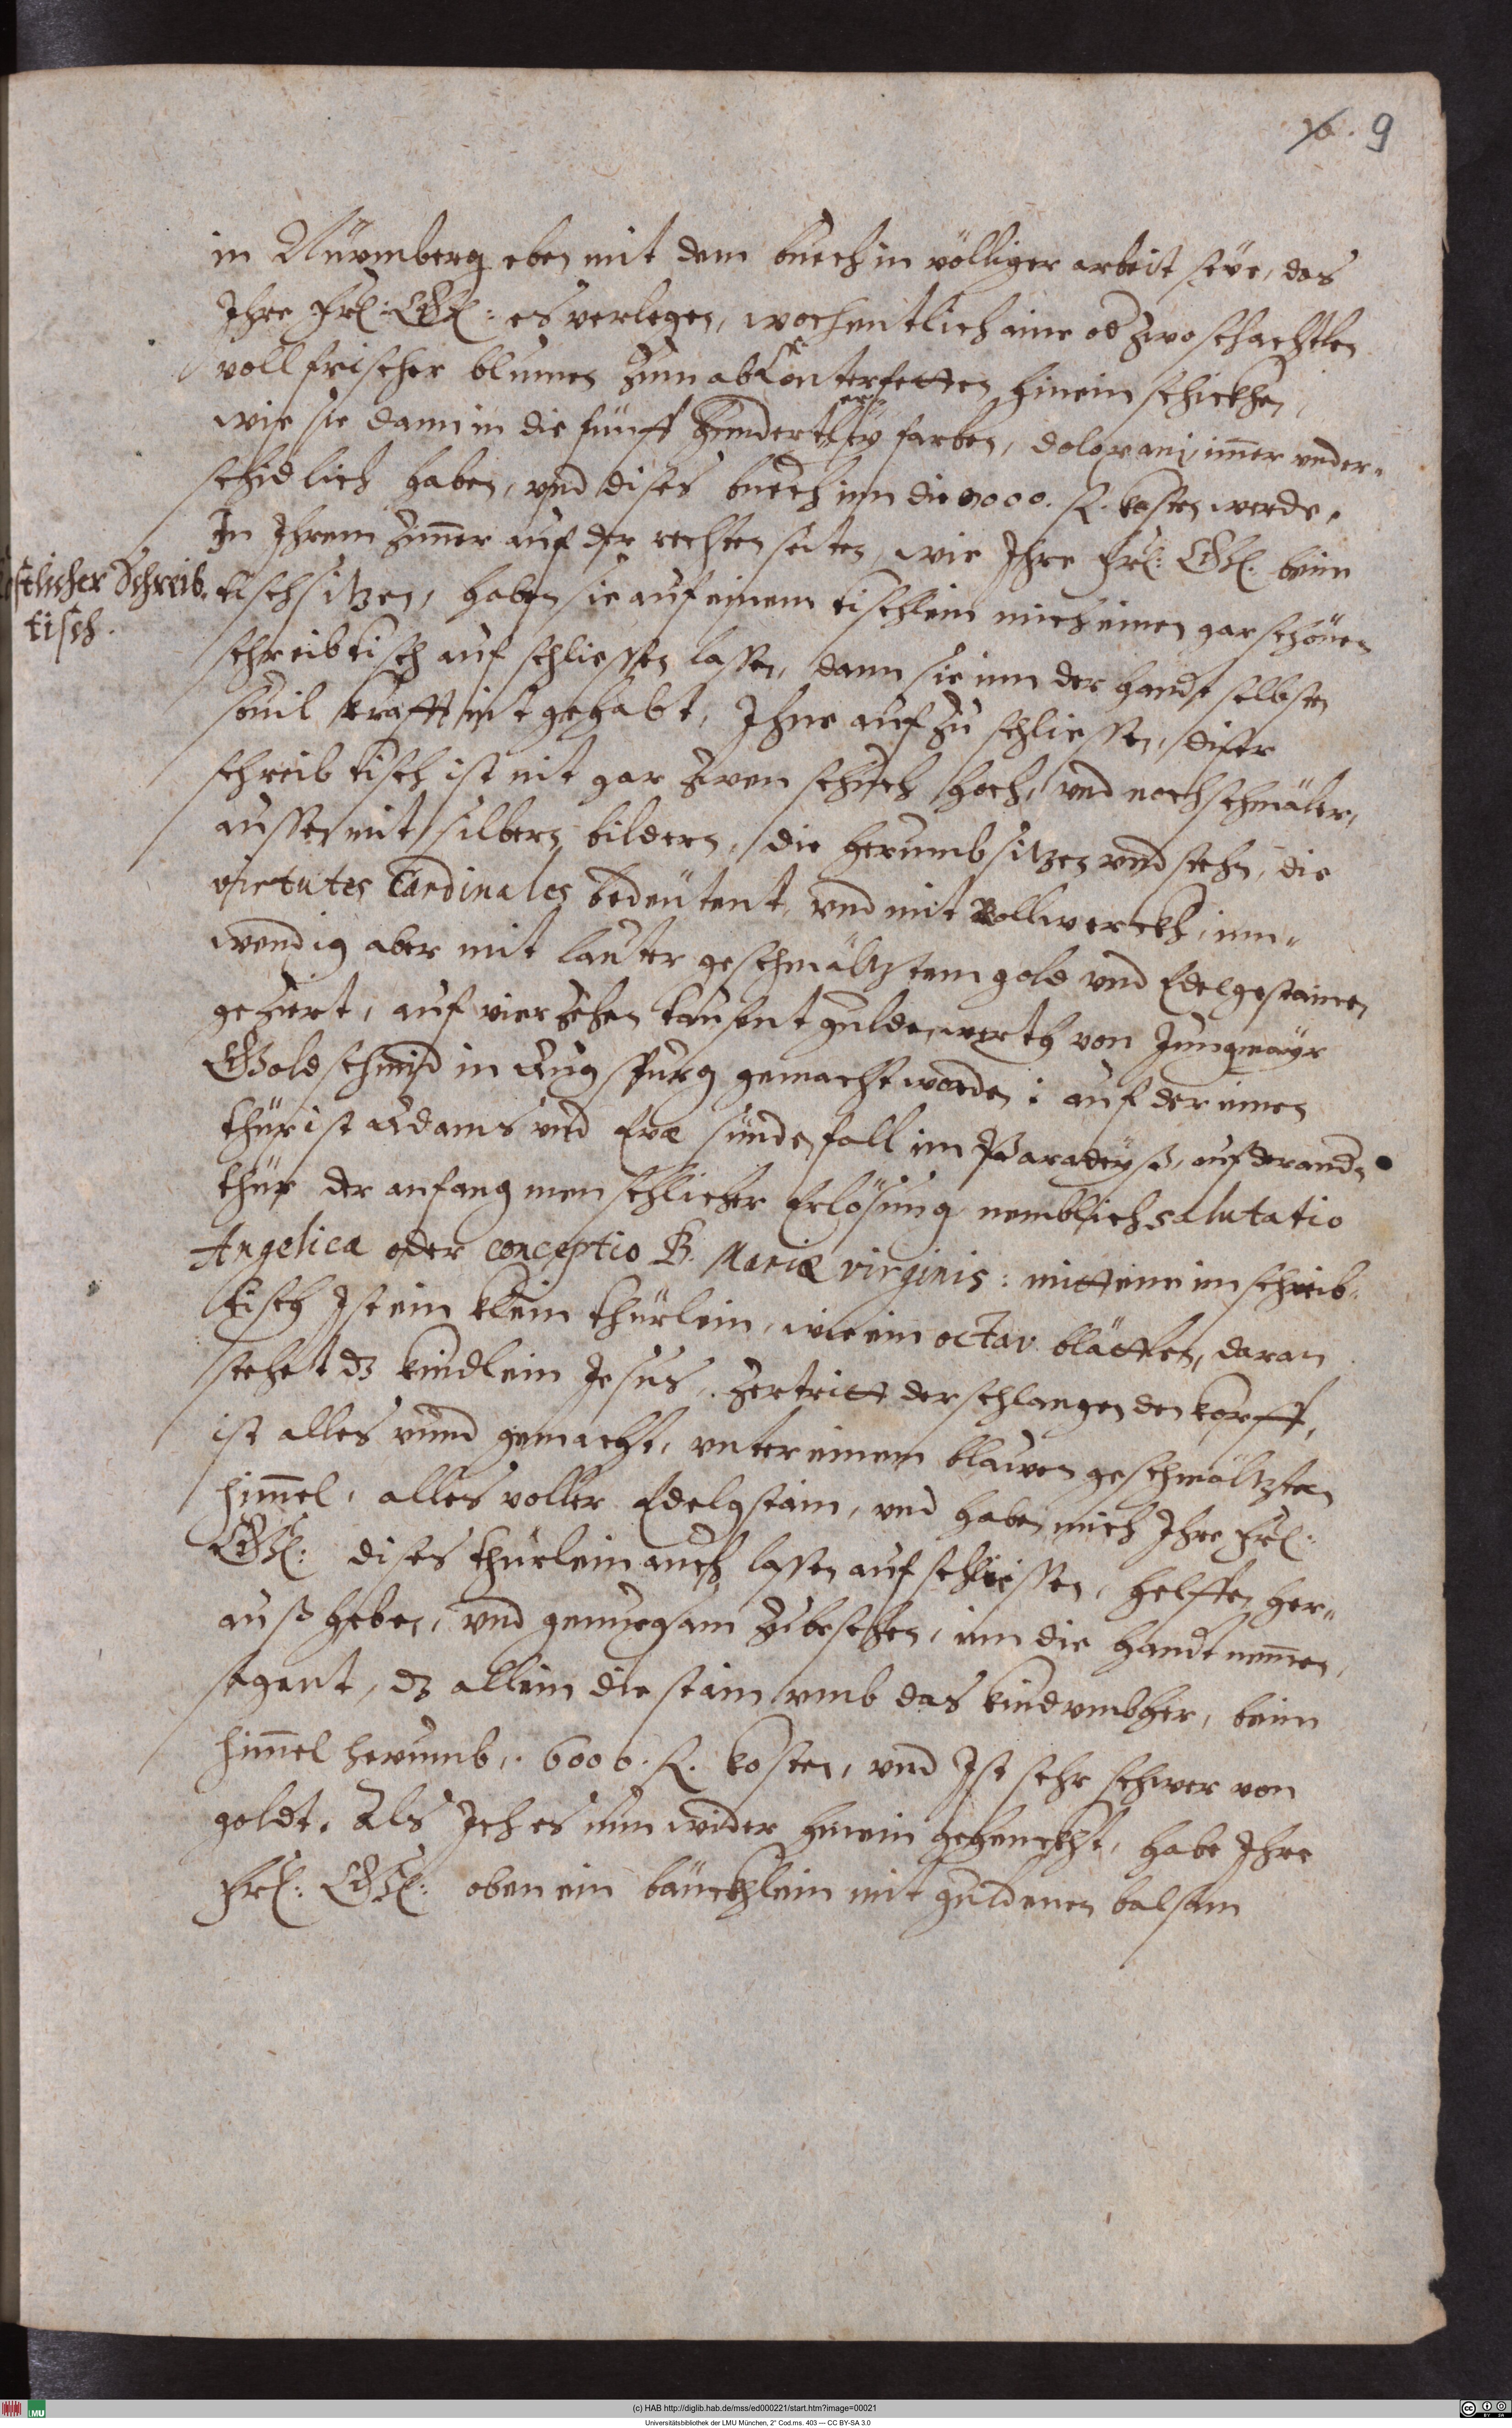 10. 9
in Nürmberg eben mit dem buech in völliger arbeit seye, das
Ihre Frl: Gl: es verlegen, wochentlich aine od zwo schachtlen
voll frischer blumen zum abConterfetten hinein schickhen,
wie sie dann in die fünff hundertlerley farben, immer under-
schidlich haben, und dises buech inn die 3000. fl. kosten werde.
In Ihrem Zimmer auf der rechten seiten, wie Ihre Frl: Gl: beim
Köstlicher Schreib.
tisch.
tisch sitzen, haben sie auf einem tischlein mich einen gar schönen
schreibtisch auf schliessen lassen, dann sie inn der handt selbsten
sovil krafft nit gehabt, Ihne auf zu schliessen, diser
schreib tisch ist nit gar zwen schuch hoch, und noch schmäler,
aussen mit silbern bildern, die herumb sitzen und stehn, die
virtutes Cardinales bedeutent, und mit Rollwerckh, inn-
wendig aber mit lauter geschmältztem gold und Edelgestainen
geziert, auf vierzehen tausent gulden werth von Jungmayr
Goldschmid in Augspurg gemacht worden: auf der einen
thür ist Adams und Evæ sündenfall im Paradeyß, auf der andn
thür der anfang menschlicher Erlösung nemblich salutatio
Angelica oder conceptio B. Mariæ virginis: mitten im schreib-
tisch Ist ein klein thürlein, wie ein octav blättlen, daran
stehet dz kindlein Jesus, zertritt der schlangen den kopff,
ist alles rund gemacht, unter einem blauen geschmältzten
himmel, alles voller Edelgstain, und haben mich Ihre Frl:
Gl: dises thürlein auch lassen auf schliessen, helffen her-
auß heben, und genuegsam zu besehen, inn die handt nemmen,
sagent, dz allein die stain umb das kind umbher, beim
himmel herumb, 6000. fl. kosten, und Ist sehr schwer von
goldt. Als Ich es nun wider hinein gehenckht, habe Ihre
Frl: Gl: oben ein bäuchlein mit guldenen balsam
(c) HAB http://diglib.hab.de/mss/ed000221/start.htm?image=00021
Universitätsbibliothek der LMU München, 2° Cod.ms. 403 — CC BY-SA 3.0